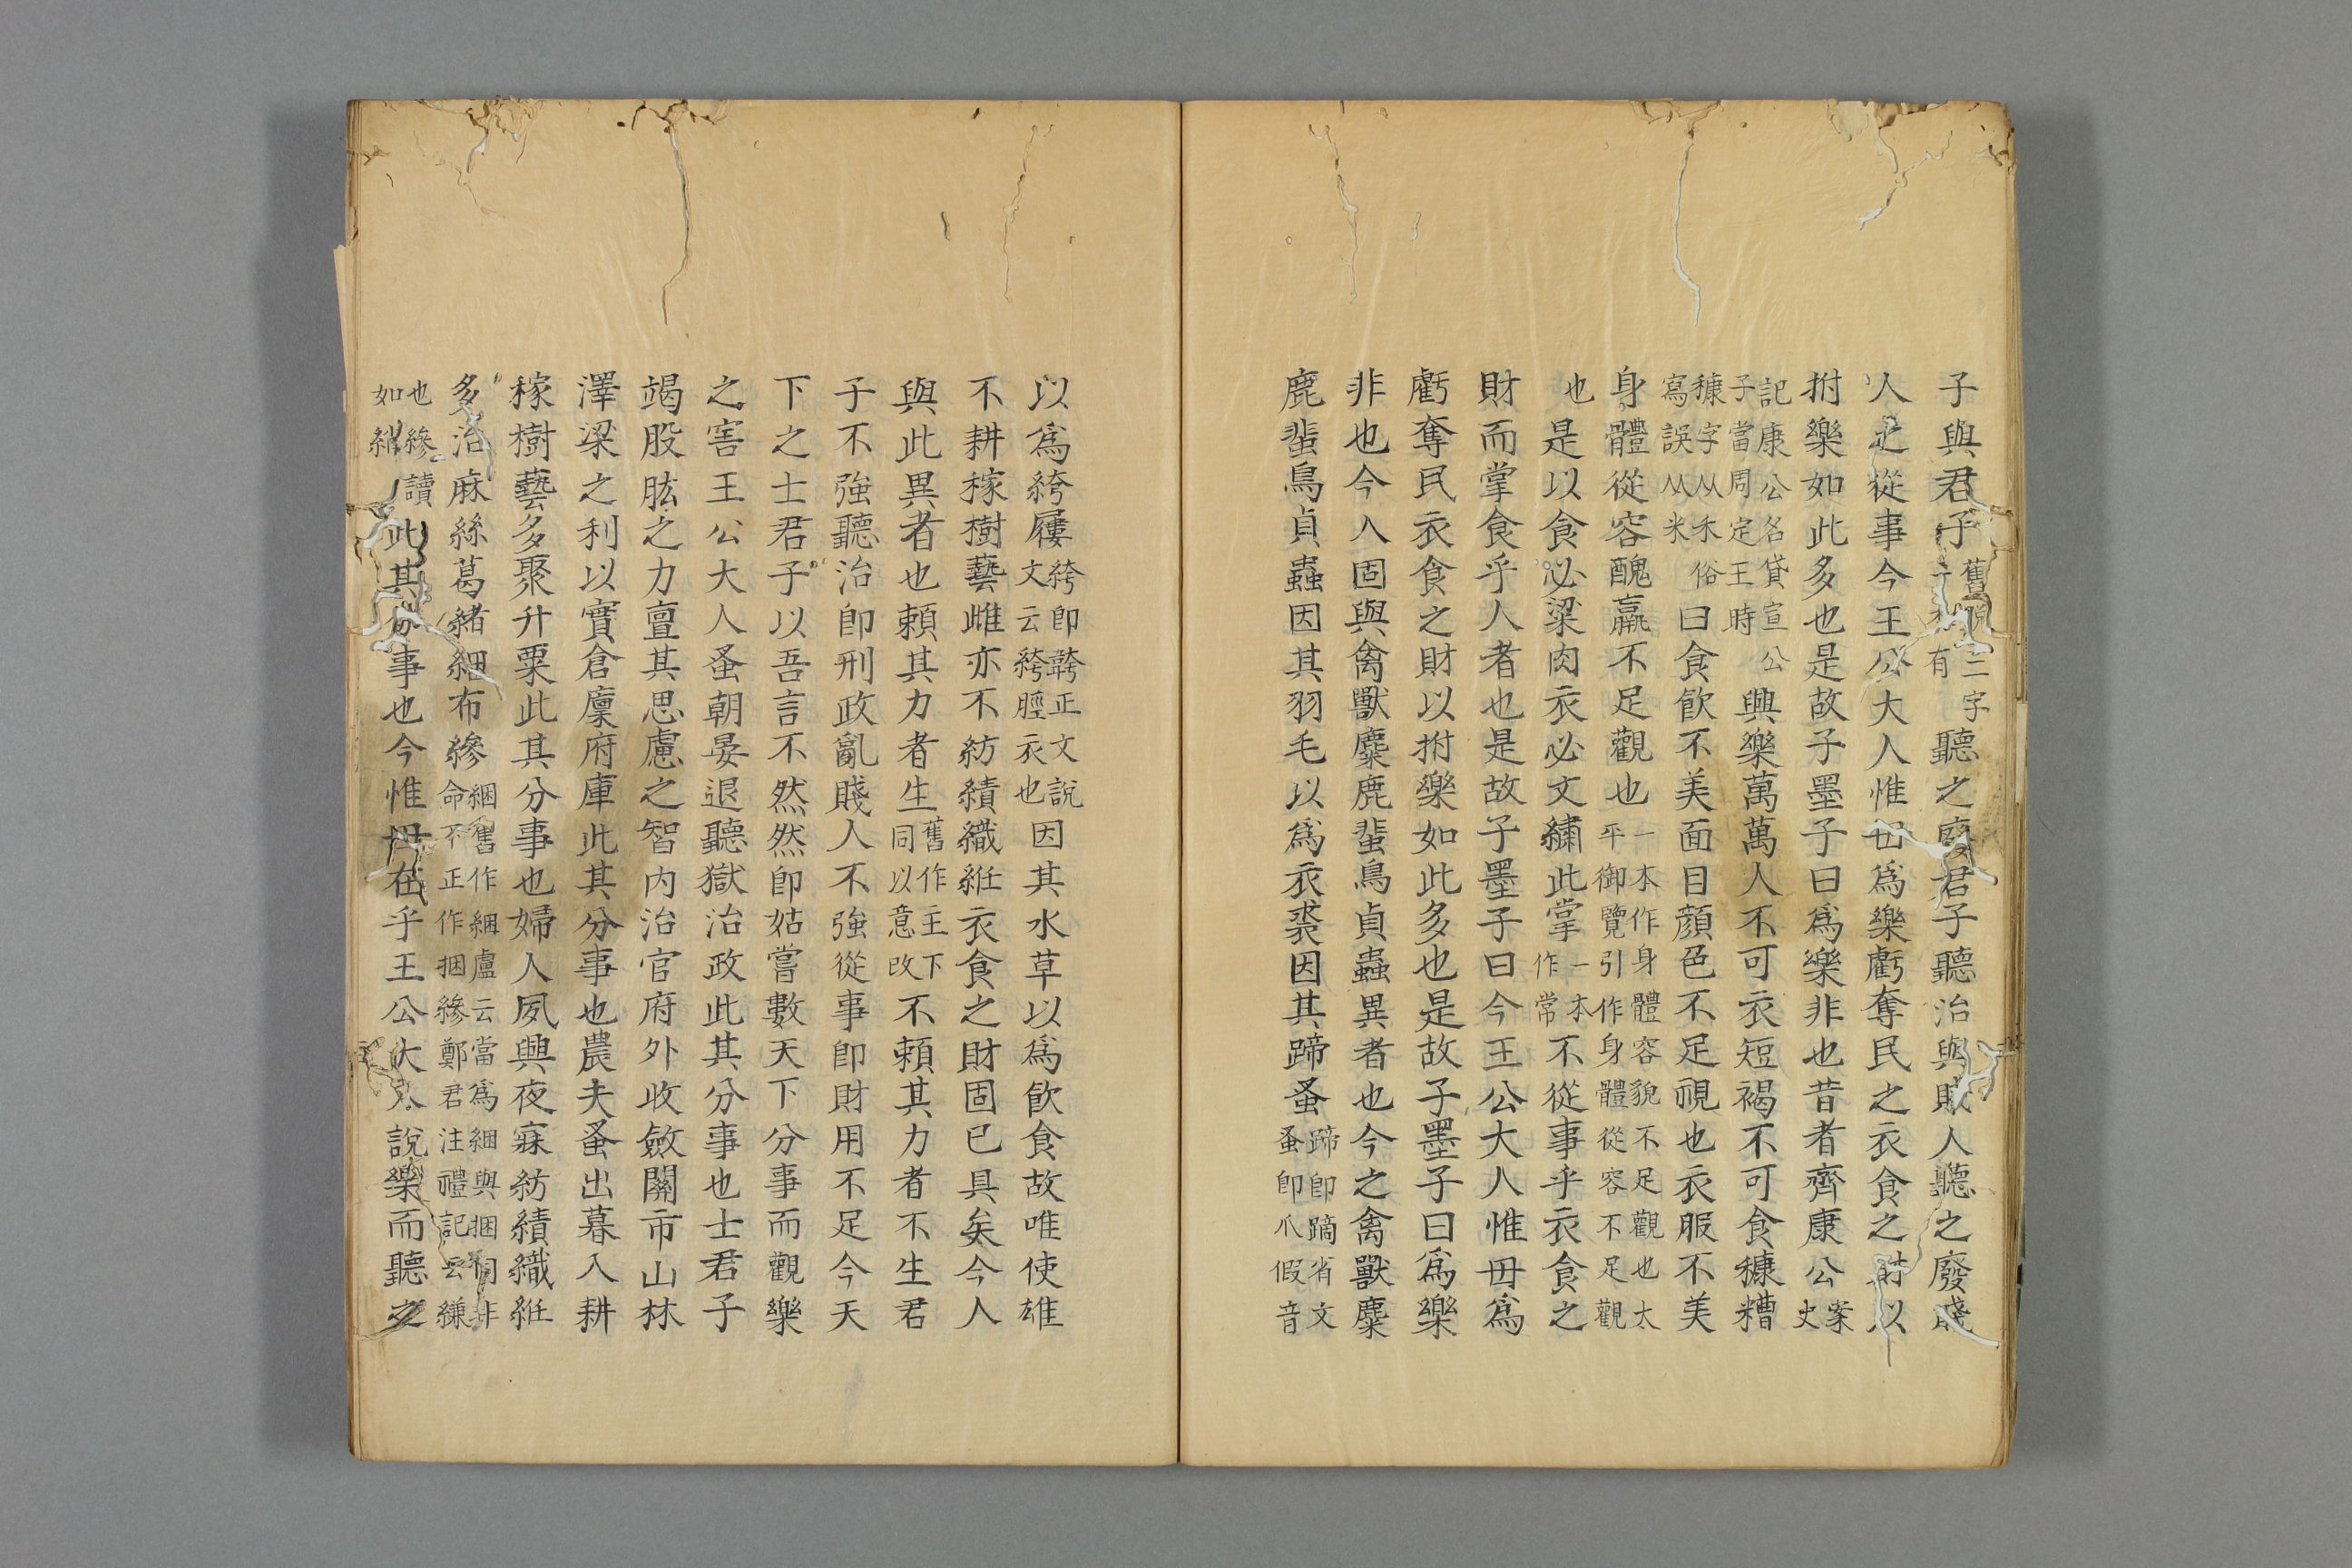 子與君子舊脫二字子有聽之廢君子聽治與賤人聽之廢賤
人之從事今王公大人惟毋爲樂虧奪民之衣食之財以
拊樂如此多也是故子墨子曰爲樂非也昔者齊康公案史
記康公名貸宣公子當周定王時興樂萬萬人不可衣短褐不可食糠糟
穅字从禾俗寫誤从米曰食飲不美面目顔色不足視也衣服不美
身體從容醜羸不足觀也一本作身體容貌不足觀也太平御覽引作身體從容不足觀
也是以食必粱肉衣必文繡此掌一本作常不從事乎衣食之
財而掌食乎人者也是故子墨子曰今王公大人惟毋爲
虧奪民衣食之財以拊樂如此多也是故子墨子曰爲樂
非也今人固與禽獸麋鹿蜚鳥貞蟲異者也今之禽獸麋
鹿蜚鳥貞蟲因其羽毛以爲衣裘因其蹄蚤蹄即蹢省文蚤即爪假音
以爲絝屨絝即䩨正文說文云絝脛衣也因其水草以爲飲食故唯使雄
不耕稼樹藝雌亦不紡績織紝衣食之財固已具矣今人
與此異者也賴其力者生舊作主下同以意改不賴其力者不生君
子不強聽治即刑政亂賤人不強從事即財用不足今天
下之士君子以吾言不然然即姑嘗數天下分事而觀樂
之害王公大人蚤朝晏退聽獄治政此其分事也士君子
竭股肱之力亶其思慮之智内治官府外收斂關市山林
澤梁之利以實倉廩府庫此其分事也農夫蚤出暮入耕
稼樹藝多聚升粟此其分事也婦人夙興夜寐紡績織紝
多治麻絲葛緒綑布縿綑舊作綑盧云當爲綑與捆同非命下正作捆縿鄭君注禮記云縑
也縿讀如綃此其分事也今惟毋在乎王公大人說樂而聽之